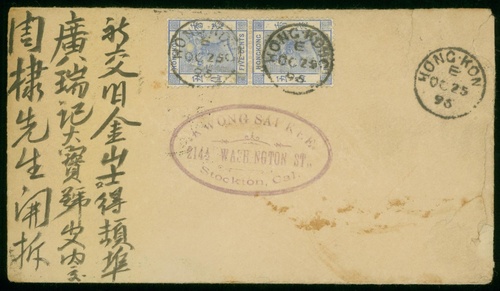 祈交旧金山士得頓埠
廣瑞記大寶號步內交
閏棣先生開拆
HONGKONG
FIVE CENTS
HONGKONG
HONG-KONG
E
OC 25
95
HONG-KONG
E
OC 25
95
HONG-KON
E
OC 25
95
KWONG SAI KEE
214 WASHINGTON ST.
Stockton, Cal.